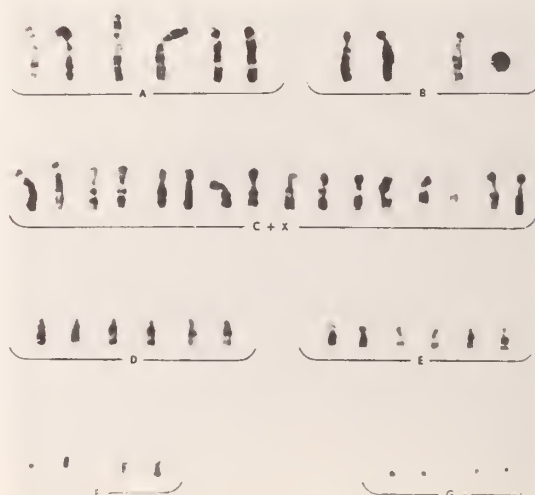 A B
C + X
D E
F G